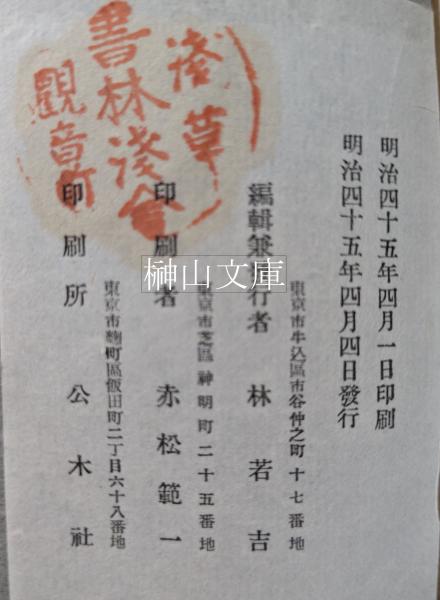 明治四十五年四月一日印刷
明治四十五年四月四日發行
東京市牛込區市谷仲之町十七番地
編輯兼發行者 林若吉
東京市芝區神明町二十五番地
印刷者 赤松範一
東京市麴町區飯田町二丁目六十八番地
印刷所 公木社
淺草
書林淺倉
觀音町
榊山文庫